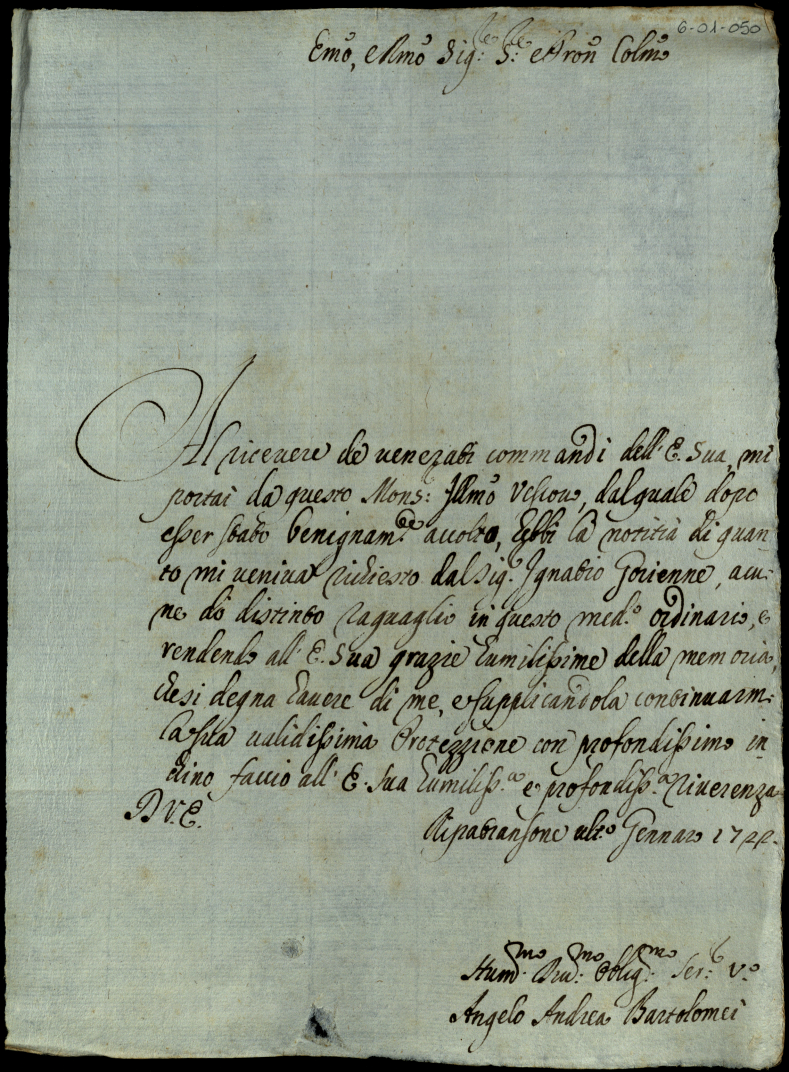 6-01-050
Emo, e Rmo Sig:re S:re e Pron Colmo
Al riceuere de venerati commandi dell' E. Sua, mi
portai da questo Mons: Illmo Vescouo, dal quale dopo
esser stato benignam.te accolto, hebbi la notitia di quan
to mi veniua richiesto dal Sig.r Ignatio
ne do distinto raguaglio in questo med.o ordinario, e
rendendo all' E. Sua grazie humilissime della memoria,
che si degna hauere di me, e supplicandola continuarmi
la sua validissima Protezzione con profondissimo in
chino faccio all' E. Sua humiliss.a e profondiss.a riuerenza
D V. E.
Ripatransone ult.o Gennaro
Hum.mo Diu.mo Oblig.mo Ser: V.o
Angelo Andrea Bartolomei